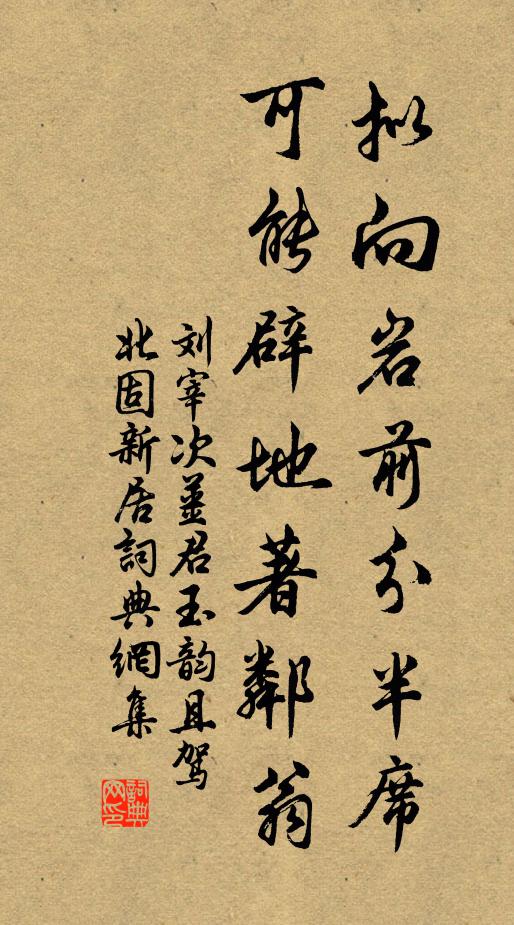 拟向岩前分半席
可能辟地著鄰翁
刘宰次薑君玉韵且駕
北固新居詞典網集
詞典
网印